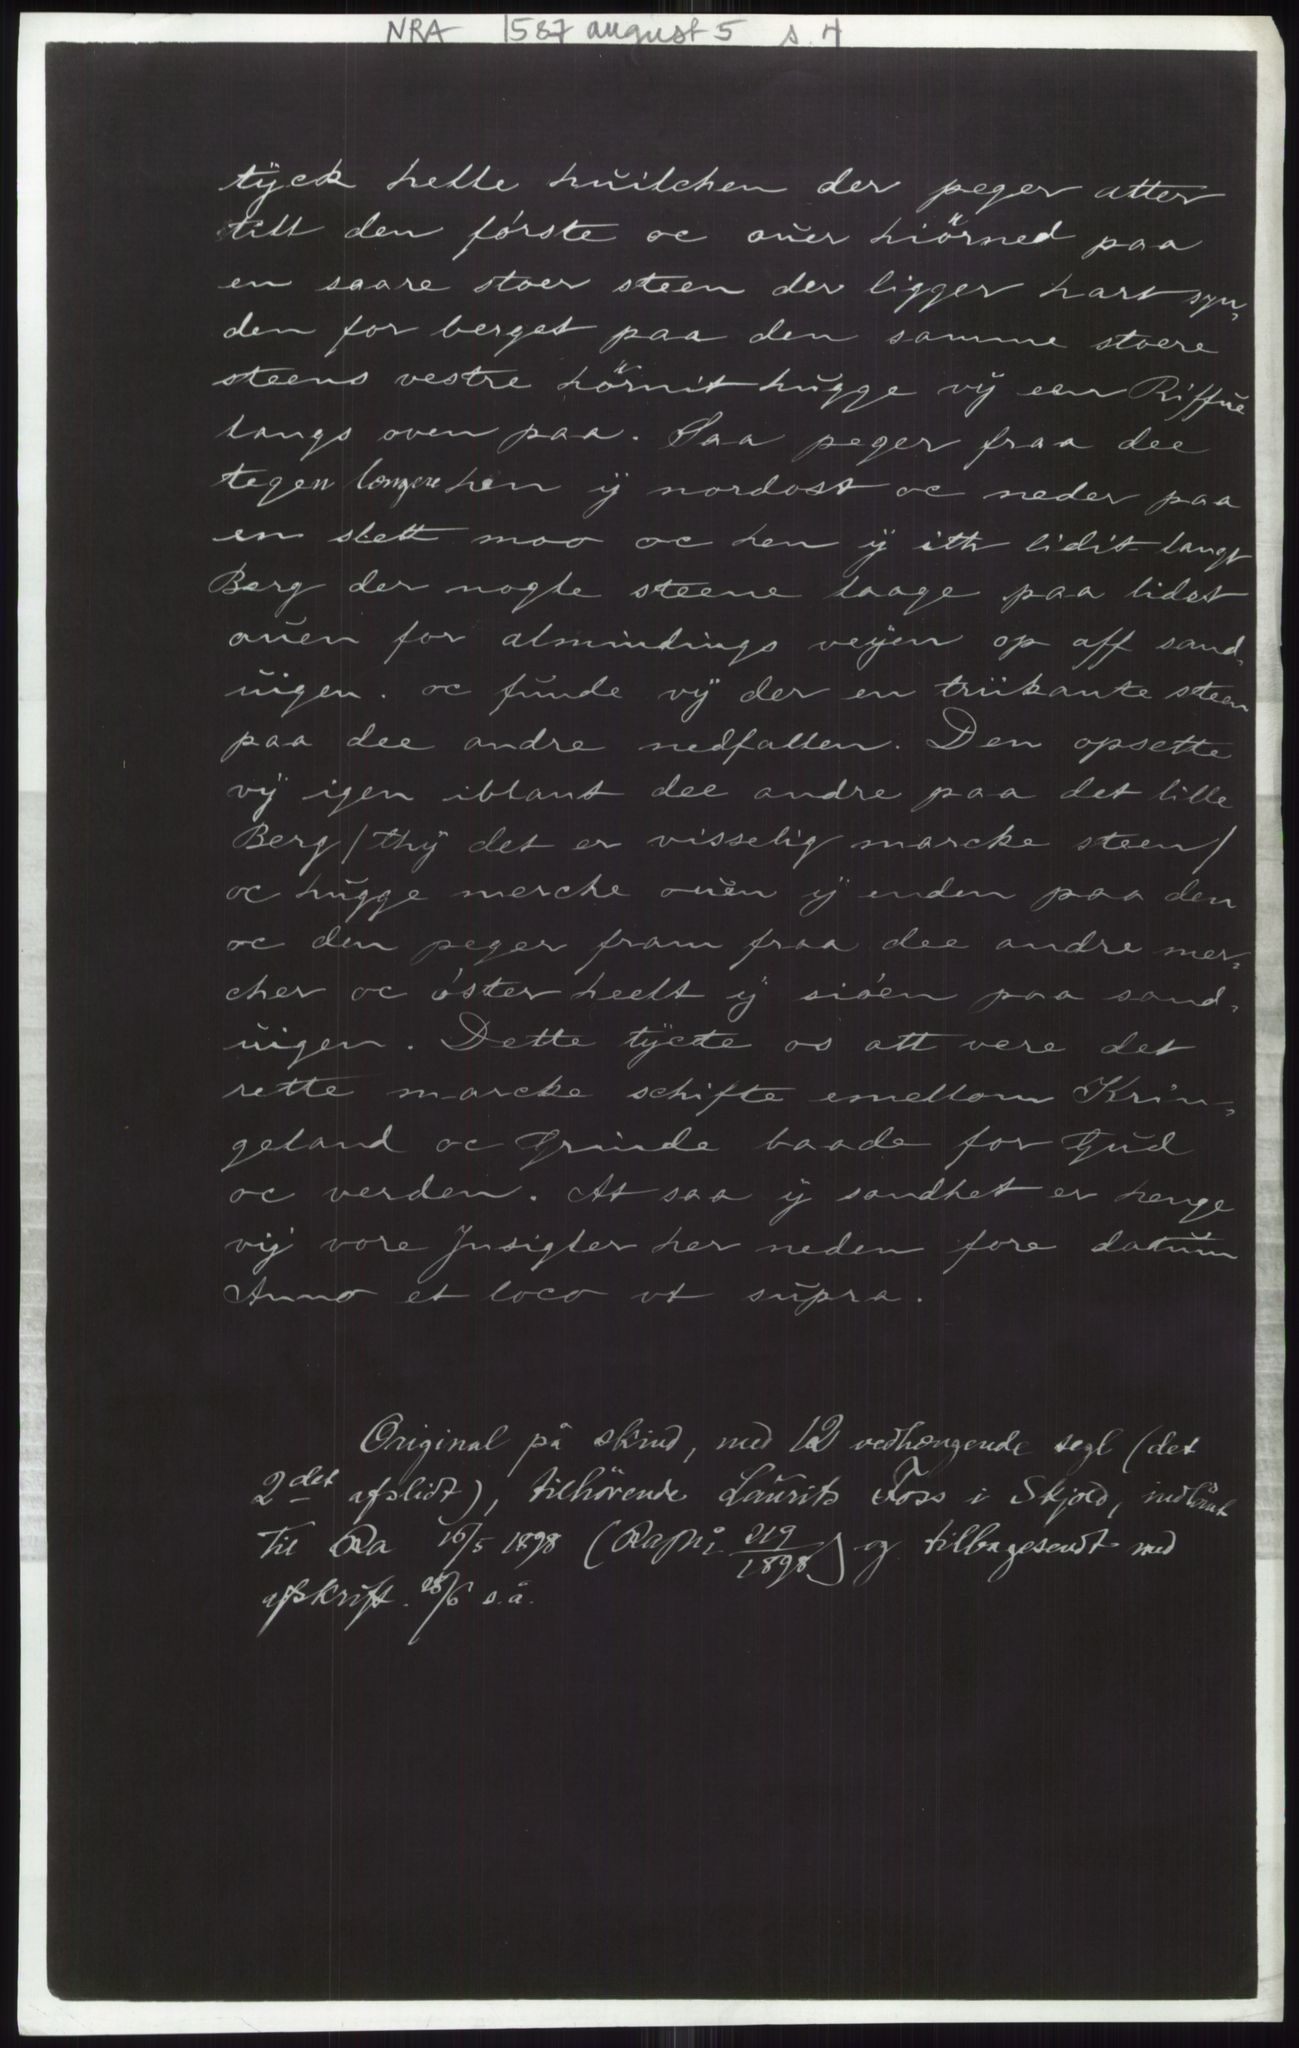 NRA 1587 august 5 s. 4
tÿck helle huilchen der peger atter
till den förste oc ouer hiörned paa
en saare stoer steen der ligger hart syn,
den for berget paa den samme stoere
steens vestre hörnit hugge vÿ een Riffue
langs oven paa. Saa peger fraa dee
tegen længere hen ÿ nordost oc neder paa
en slett moo oc hen ÿ ith lidit langt
Berg der nogle steene laage paa lidet
ouen for almindings veÿen op aff sand,
uigen. oc funde vÿ der en triikante steen
paa dee andre nedfallen. Den opsette
vÿ igen iblant dee andre paa det lille
Berg / thÿ det er visselig marcke steen /
oc hugge mercke ouen ÿ enden paa den
oc den peger fram fraa dee andre mer,
cher oc öster heelt ÿ siöen paa sand,
uigen. Dette tÿcte os att vere det
rette marcke schifte emellom Krin,
geland oc Grinde baade for Gud
oc verden. At saa ÿ sandhet er henge
vÿ vore Insigler her neden fore datum
Anno et loco vt supra.
Original på skind, med 12 vedhængende segl (det
2det afslidt), tilhörende Laurits Foss i Skjold, indlånt
til Ra 16/5 1898 ( 219/1898) og tilbagesendt med
afskrift. 28/6 s.å.